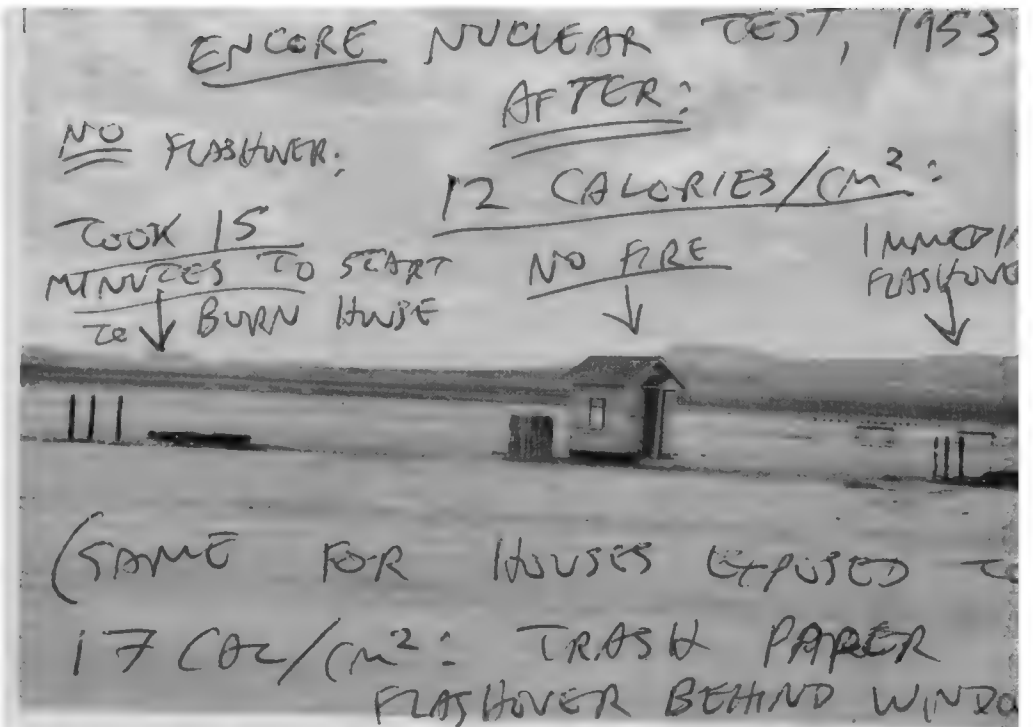 ENCORE NUCLEAR TEST, 1953
AFTER:
12 CALORIES/CM²:
NO FLASHOVER:
TOOK 15
MINUTES TO START
TO BURN HOUSE
NO FIRE
IMMEDIA
FLASHOVE
(SAME FOR HOUSES EXPOSED TO
17 CAL/CM²: TRASH PAPER
FLASHOVER BEHIND WINDO